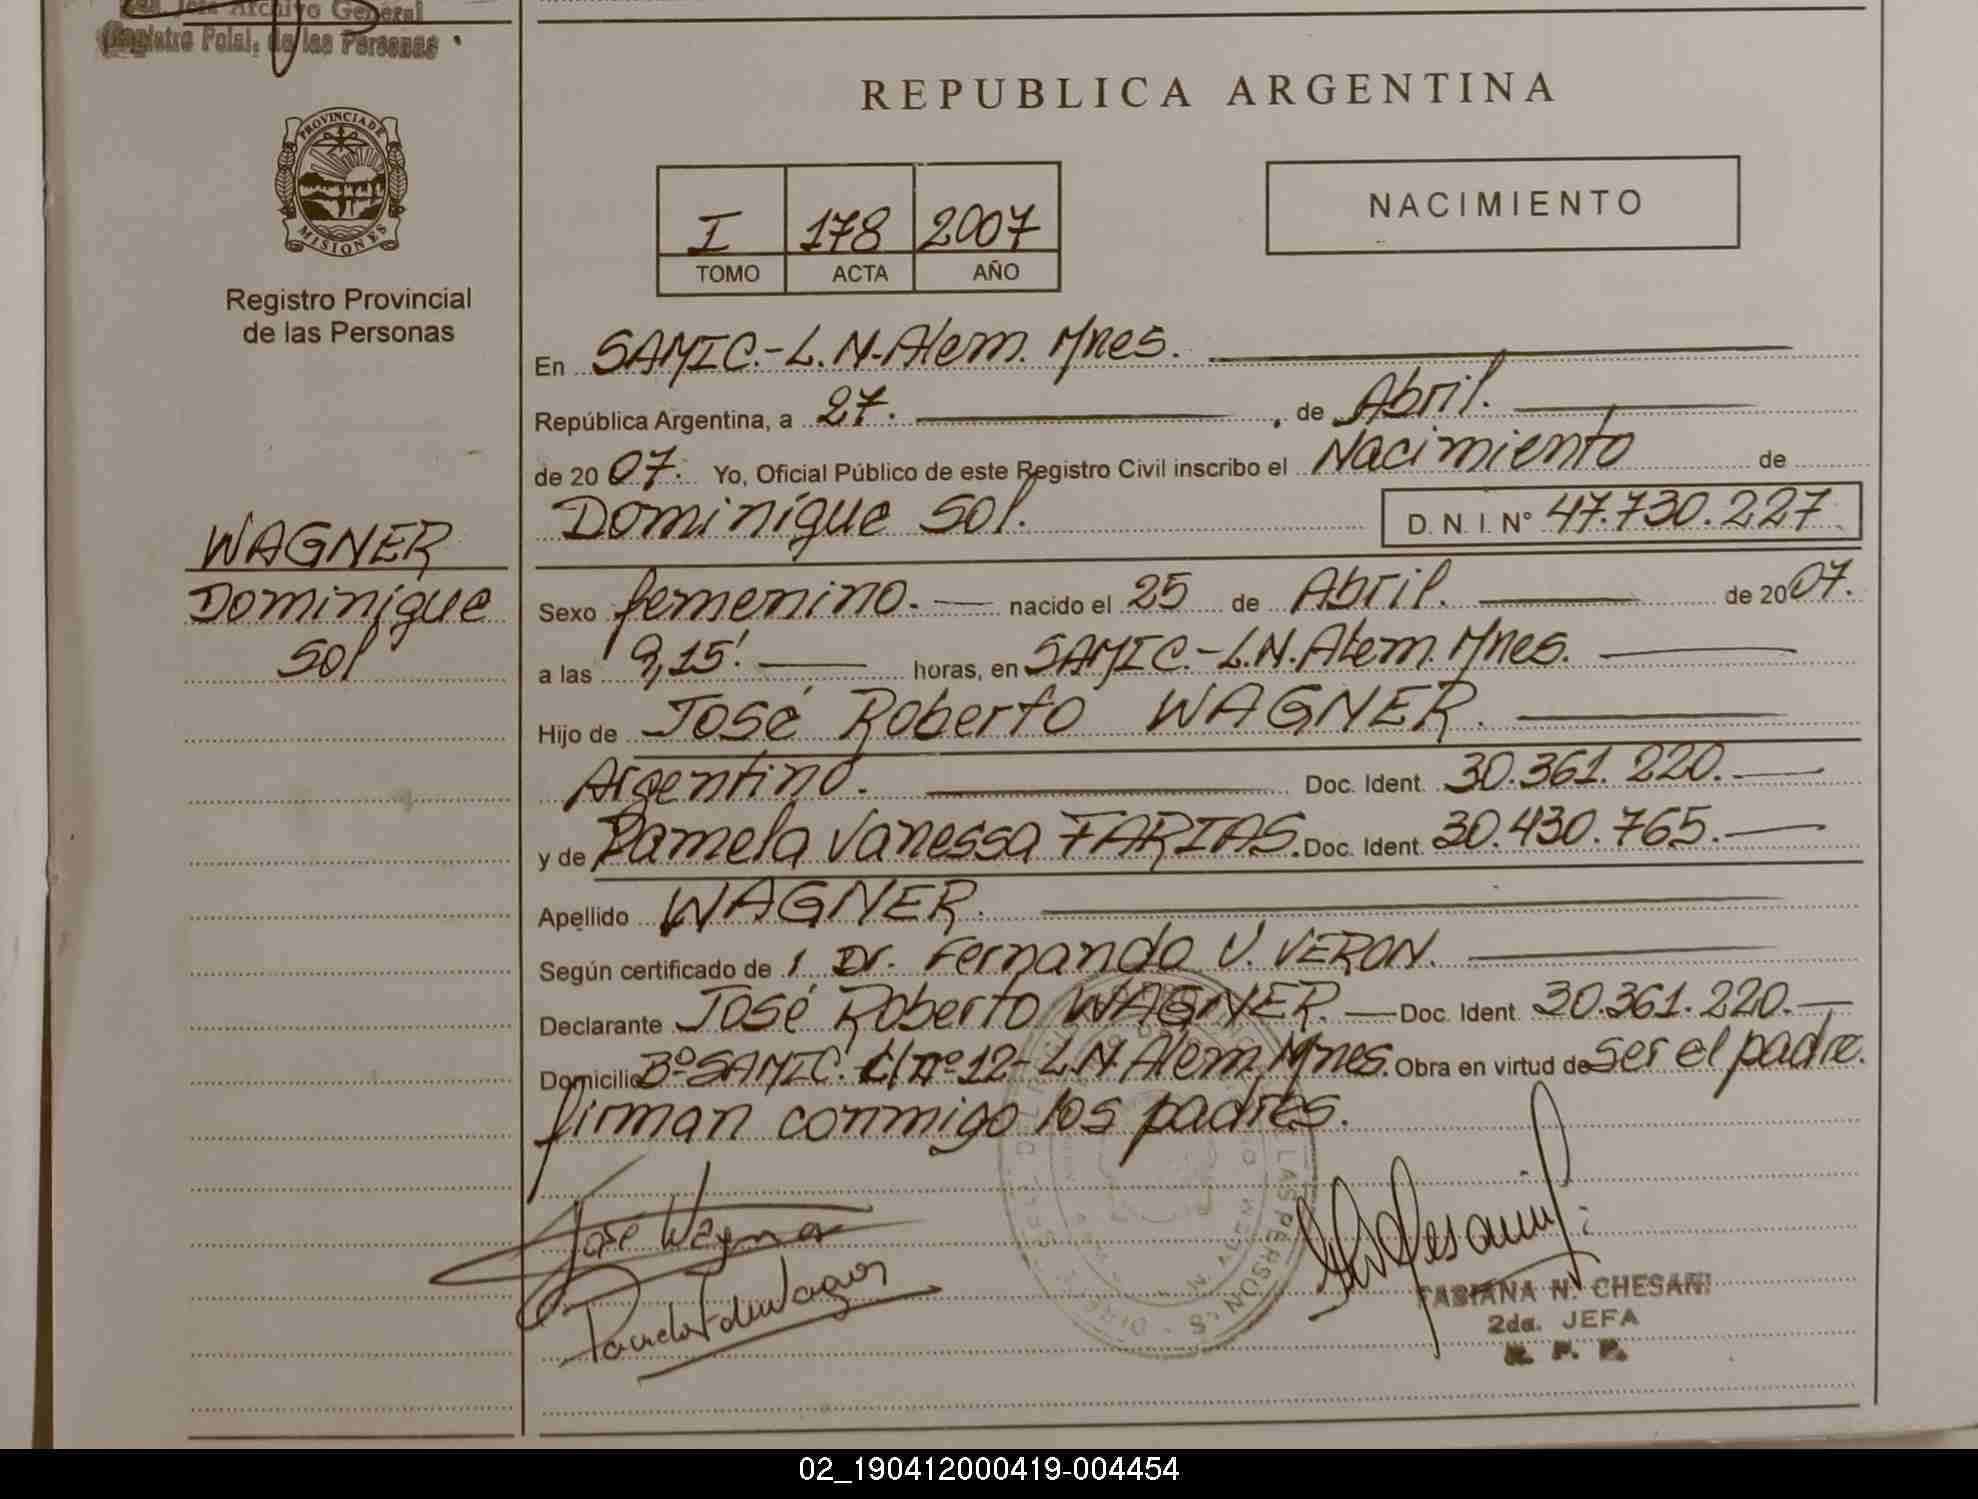 Jefa Archivo General
Registro Pcial. de las Personas
PROVINCIA DE
MISIONES
Registro Provincial
de las Personas
WAGNER
Dominique
Sol
REPUBLICA ARGENTINA
I 178 2007
TOMO ACTA AÑO
NACIMIENTO
En SAMIC.-L.N.Alem. Mnes.
República Argentina, a 27. , de Abril.
de 2007. Yo, Oficial Público de este Registro Civil inscribo el Nacimiento de
Dominique Sol. D. N. I. N° 47.730.227
Sexo femenino. nacido el 25 de Abril. de 2007.
a las 9,15'. horas, en SAMIC.-L.N.Alem. Mnes.
Hijo de José Roberto WAGNER.
Argentino. Doc. Ident. 30.361.220.
y de Pamela Vanessa FARIAS. Doc. Ident. 30.430.765.
Apellido WAGNER.
Según certificado de Dr. Fernando V. VERON.
Declarante José Roberto WAGNER. Doc. Ident. 30.361.220.
Domicilio B° SAMIC. C/n° 12- L.N.Alem, Mnes. Obra en virtud de ser el padre.
firman conmigo los padres.
José Wagner
LAS PERSONAS
FABIANA N. CHESANI
2da. JEFA
R. P. P.
02_190412000419-004454